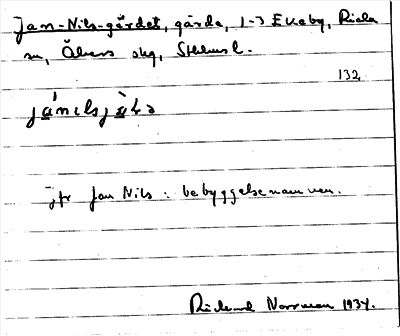 Jan-Nils-gärdet, gärda, 1-3 Ekeby, Riala
sn, Åkers skg, Sthlms l.
132
jfr Jan Nils i bebyggelsenamnen.
Rickard Norrman 1934.